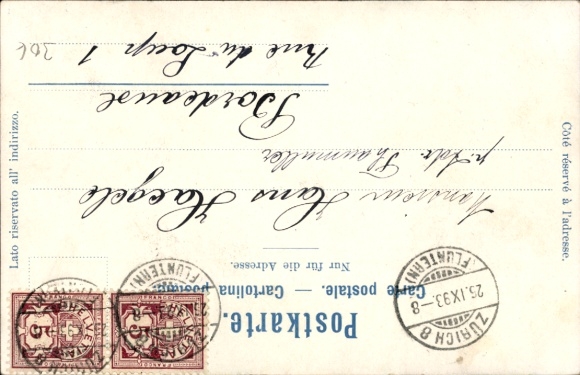 Postkarte.
Carte postale. — Cartolina postale.
Nur für die Adresse.
Monsieur Hans Haegele
p. Adr. Thaumuller
Bordeaux
rue du Loup 1
Côté réservé à l'adresse.
Lato riservato all' indirizzo.
ZÜRICH 8
26.IX.93.-8
(FLUNTERN)
HELVETIA
FRANCO
5
HELVETIA
FRANCO
5
30€